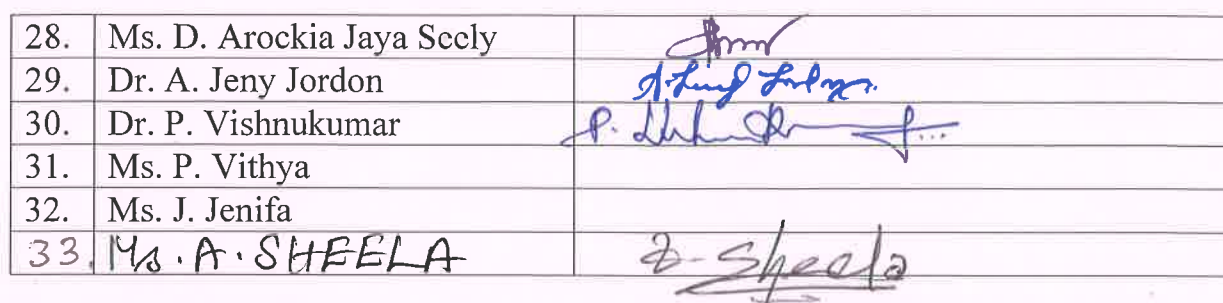 28. Ms. D. Arockia Jaya Seely
29. Dr. A. Jeny Jordon
30. Dr. P. Vishnukumar P.
31. Ms. P. Vithya
32. Ms. J. Jenifa
33. Ms. A. SHEELA Sheela